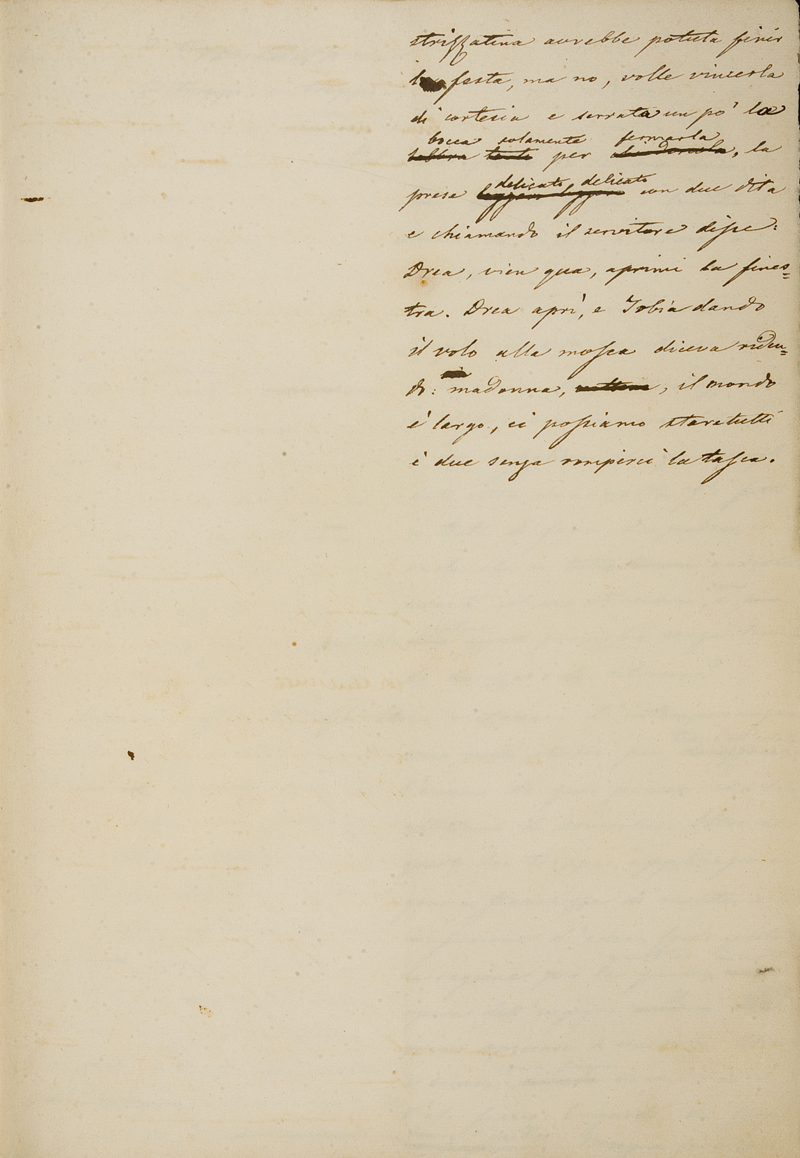 strizzatina avrebbe potuta finir
la festa, ma no, volle vincerla
di cortesia e serrata un po' la
bocca solamente fermarla
labbra tanto per , la
delicato delicato
presa con due dita
e chiamando il servitore disse:
Drea, vien qua, aprimi la fines=
tra. Drea aprì, e Tobia dando
il volo alla mosca diceva riden=
do: madonna, , il mondo
è largo, ci possiamo stare tutti
e due senza romperci la tasca.